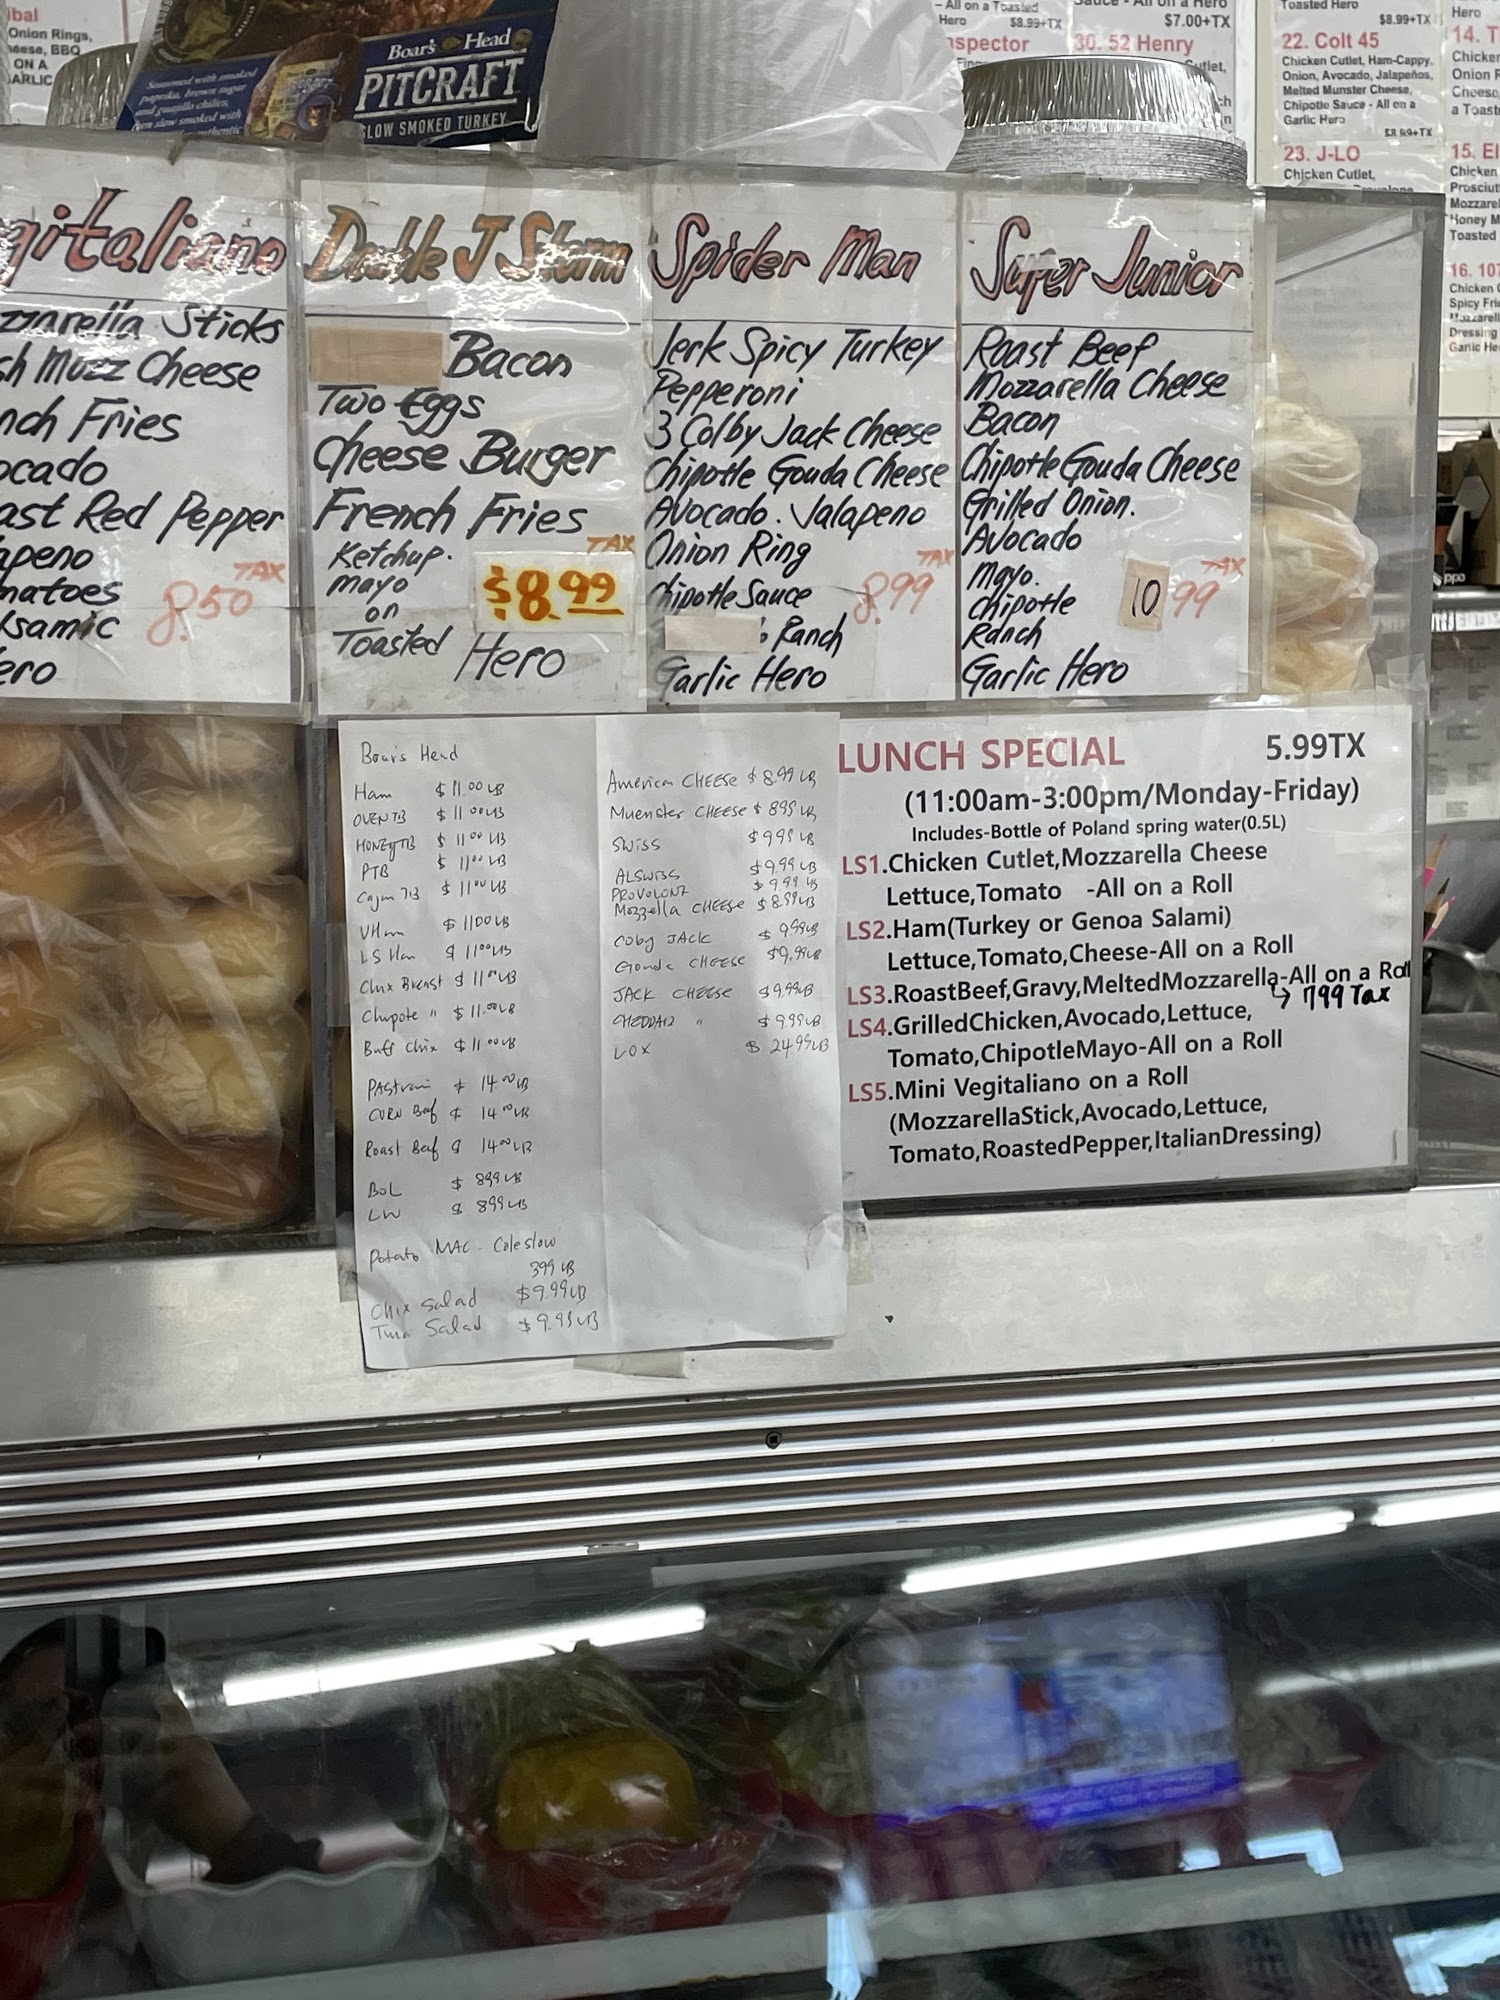 ibal
Onion Rings,
heese, BBQ
ON A
ARLIC
Boar's Head
PITCRAFT
SLOW SMOKED TURKEY
Seasoned with smoked
paprika, brown sugar
and guajillo chilies,
smoked with
- All on a Toasted
Hero $8.99+TX
nspector
Sauce - All on a Hero
$7.00+TX
30. 52 Henry
Toasted Hero
$8.99+TX
22. Colt 45
Chicken Cutlet, Ham-Cappy,
Onion, Avocado, Jalapeños,
Melted Munster Cheese,
Chipotle Sauce - All on a
Garlic Hero
$8.99+TX
23. J-LO
Chicken Cutlet,
Hero
14. T
Chicken
Onion R
Cheese,
a Toast
15. El
Chicken
Prosciut
Mozzarel
Honey M
Toasted
16. 107
Chicken C
Spicy Frie
Mozzarell
Dressing
Garlic He
gitaliano
zzarella Sticks
sh Muzz Cheese
nch Fries
ocado
ast Red Pepper
apeno
matoes
lsamic
ero
TAX
8.50
Double J Storm
Bacon
Two Eggs
Cheese Burger
French Fries
Ketchup.
mayo
on
Toasted Hero
TAX
$8.99
Spider Man
Jerk Spicy Turkey
Pepperoni
3 Colby Jack Cheese
Chipotle Gouda Cheese
Avocado. Jalapeno
Onion Ring
Chipotle Sauce
Ranch
Garlic Hero
TAX
8.99
Super Junior
Roast Beef
Mozzarella Cheese
Bacon
Chipotle Gouda Cheese
Grilled Onion.
Avocado
Mayo.
Chipotle
Ranch
Garlic Hero
TAX
10 99
Boar's Head
Ham $11.00 LB
OVEN TB $11.00 LB
HONEY TB $11.00 LB
PTB $11.00 LB
Cajun TB $11.00 LB
VHam $11.00 LB
LS Ham $11.00 LB
Chix Breast $11.00 LB
Chipote " $11.00 LB
Buff Chix $11.00 LB
PAStrami $14.00 LB
CORN Beef $14.00 LB
Roast Beef $14.00 LB
BoL $899 LB
LW $899 LB
Potato MAC. Coleslow
399 LB
Chix Salad $9.99 LB
Tuna Salad $9.99 LB
American CHEESE $8.99 LB
Muenster CHEESE $899 LB
SWISS $999 LB
ALSWISS $9.99 LB
PROVOLONE $9.99 LB
Mozzella CHEESE $8.99 LB
COBY JACK $999 LB
Gouda CHEESE $9.99 LB
JACK CHEESE $9.99 LB
CHEDDAR " $9.99 LB
LOX $24.99 LB
LUNCH SPECIAL 5.99TX
(11:00am-3:00pm/Monday-Friday)
Includes-Bottle of Poland spring water(0.5L)
LS1.Chicken Cutlet,Mozzarella Cheese
Lettuce,Tomato -All on a Roll
LS2.Ham(Turkey or Genoa Salami)
Lettuce,Tomato,Cheese-All on a Roll
LS3.RoastBeef,Gravy,MeltedMozzarella-All on a Roll
↳ 799 Tax
LS4.GrilledChicken,Avocado,Lettuce,
Tomato,ChipotleMayo-All on a Roll
LS5.Mini Vegitaliano on a Roll
(MozzarellaStick,Avocado,Lettuce,
Tomato,RoastedPepper,ItalianDressing)